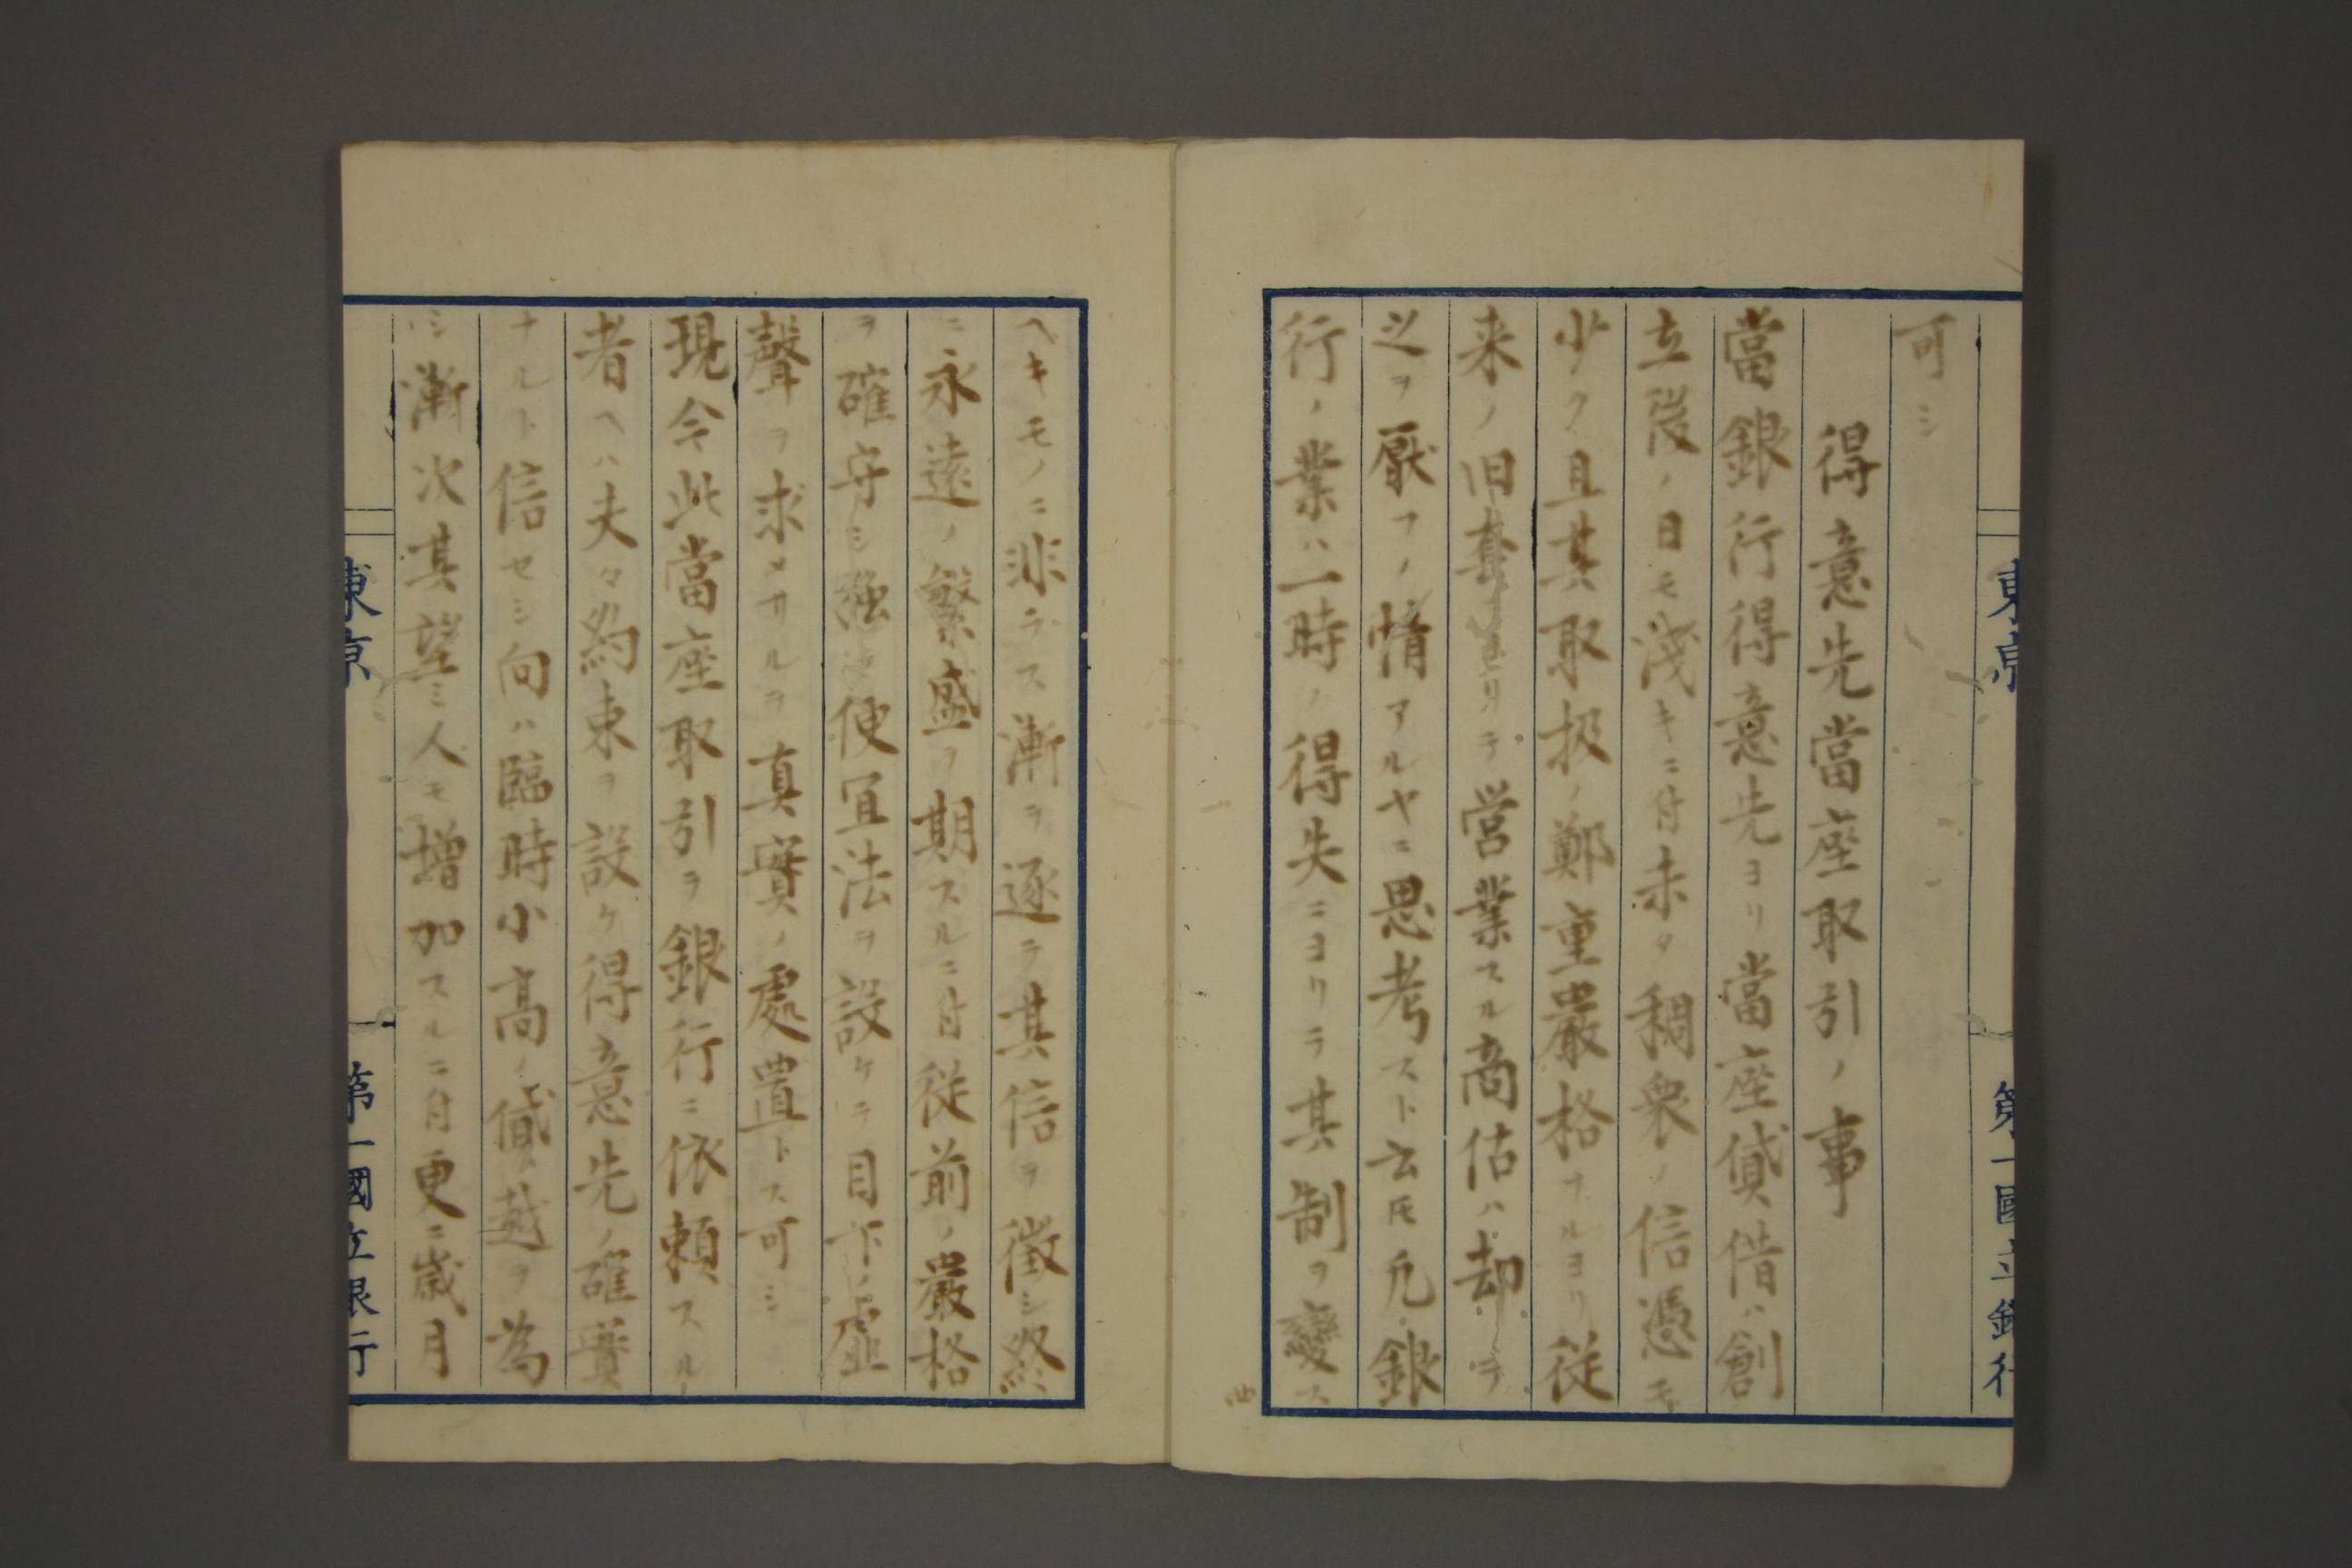 可シ
得意先當座取引ノ事
當銀行得意先ヨリ當座貸借ハ創
立後ノ日モ浅キニ付未タ稠衆ノ信憑モ
少ク且其取扱ノ鄭重嚴格ナルヨリ従
来ノ旧套ヨリテ営業スル商估ハ却テ
之ヲ厭フノ情アルヤニ思考スト云𪜈凢銀
行ノ業ハ一時ノ得失ニヨリテ其制ヲ變ス
ヘキモノニ非ラス漸ヲ逐テ其信ヲ徴シ終
ニ永遠ノ繁盛ヲ期スルニ付従前ノ嚴格
ヲ確守シ強テ便宜法ヲ設ケテ目下ノ虚
聲ヲ求メサルヲ真實ノ處置トス可シ
現今此當座取引ヲ銀行ニ依頼スル
者ヘハ夫々約束ヲ設ケ得意先ノ確實
ナルト信セシ向ハ臨時小高ノ貸越ヲ為
シ漸次其望ミ人モ増加スルニ付更ニ歳月
東京
第一國立銀行
東京
第一國立銀行